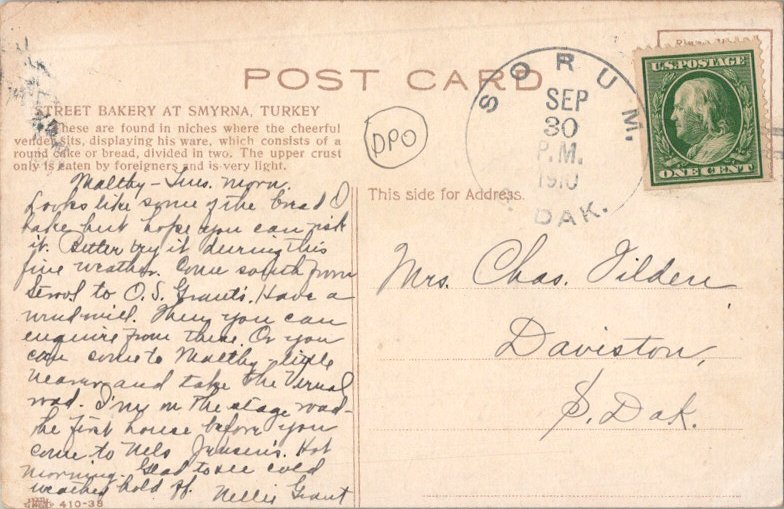 POST CARD
STREET BAKERY AT SMYRNA, TURKEY
These are found in niches where the cheerful
vender sits, displaying his ware, which consists of a
round cake or bread, divided in two. The upper crust
only is eaten by foreigners and is very light.
Maltby - Tues. Morn.
Looks like some of the bread I
bake but hope you can risk
it. Better try it during this
fine weather. Come south from
Strool to O.S. Grant's. Have a
windmill. Then you can
enquire from there. Or you
can come to Maltby - little
nearer and take the Vernal
road. I'm on the stage road -
the first house before you
come to Nels Jensen's. Hot
morning. Glad to see cold
weather hold off. Nellie Grant
410-38
DPO
This side for Address.
SORUM.
SEP
30
P.M.
1910
DAK.
U.S. POSTAGE
ONE CENT
Mrs. Chas. Tilden
Daviston,
S. Dak.